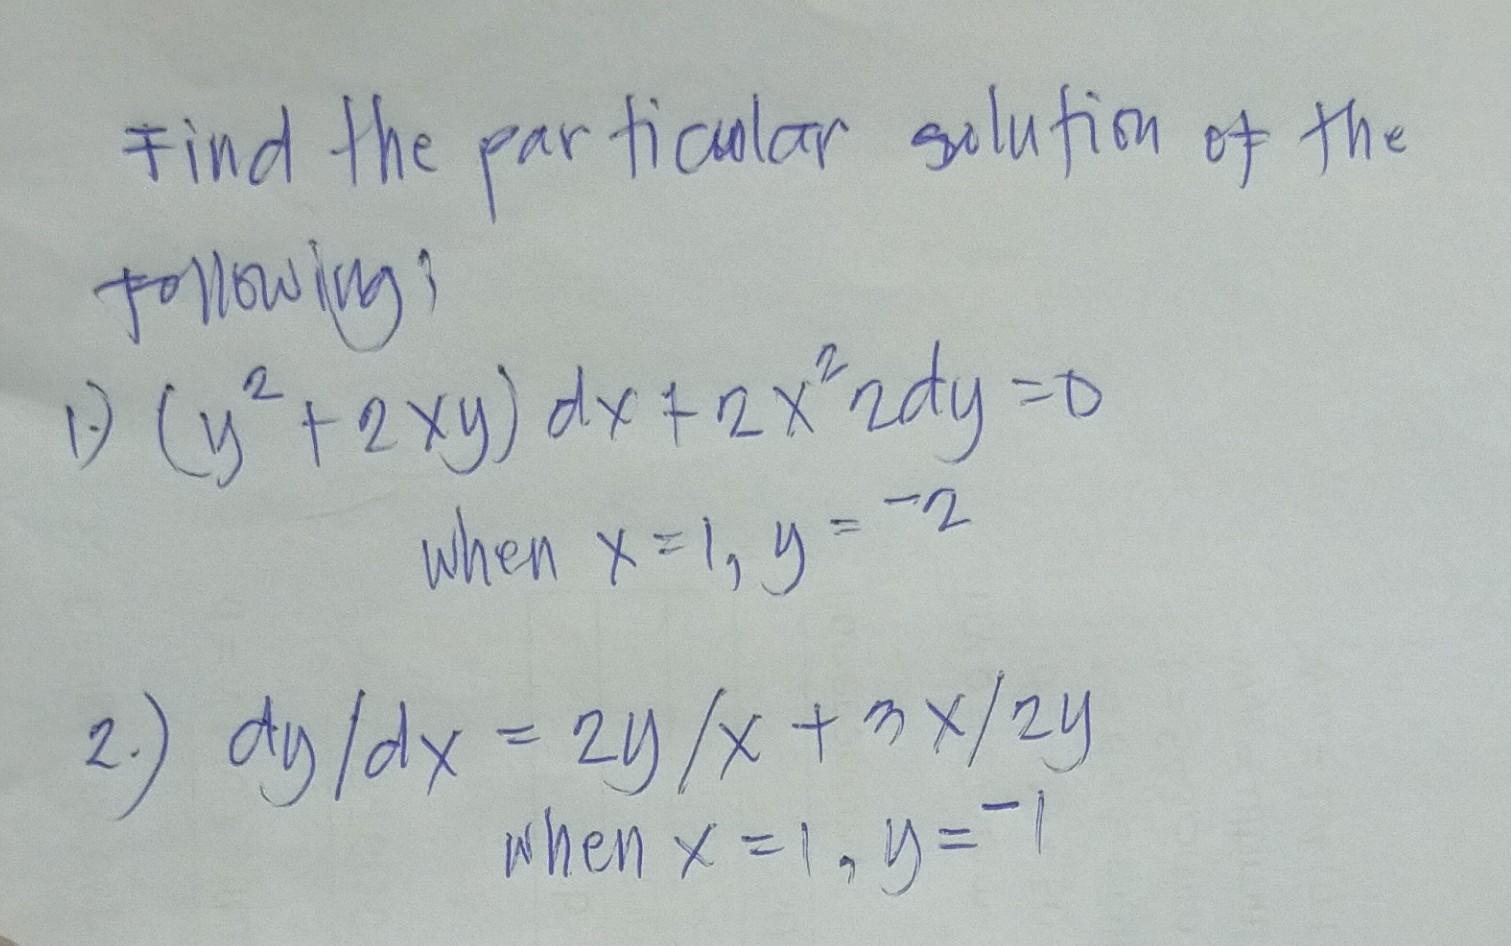 Find the particular solution of the
following;
1.) (y² + 2xy) dx + 2x²2dy = 0
when x = 1, y = -2
2.) dy/dx = 2y/x + 3x/2y
when x = 1, y = -1